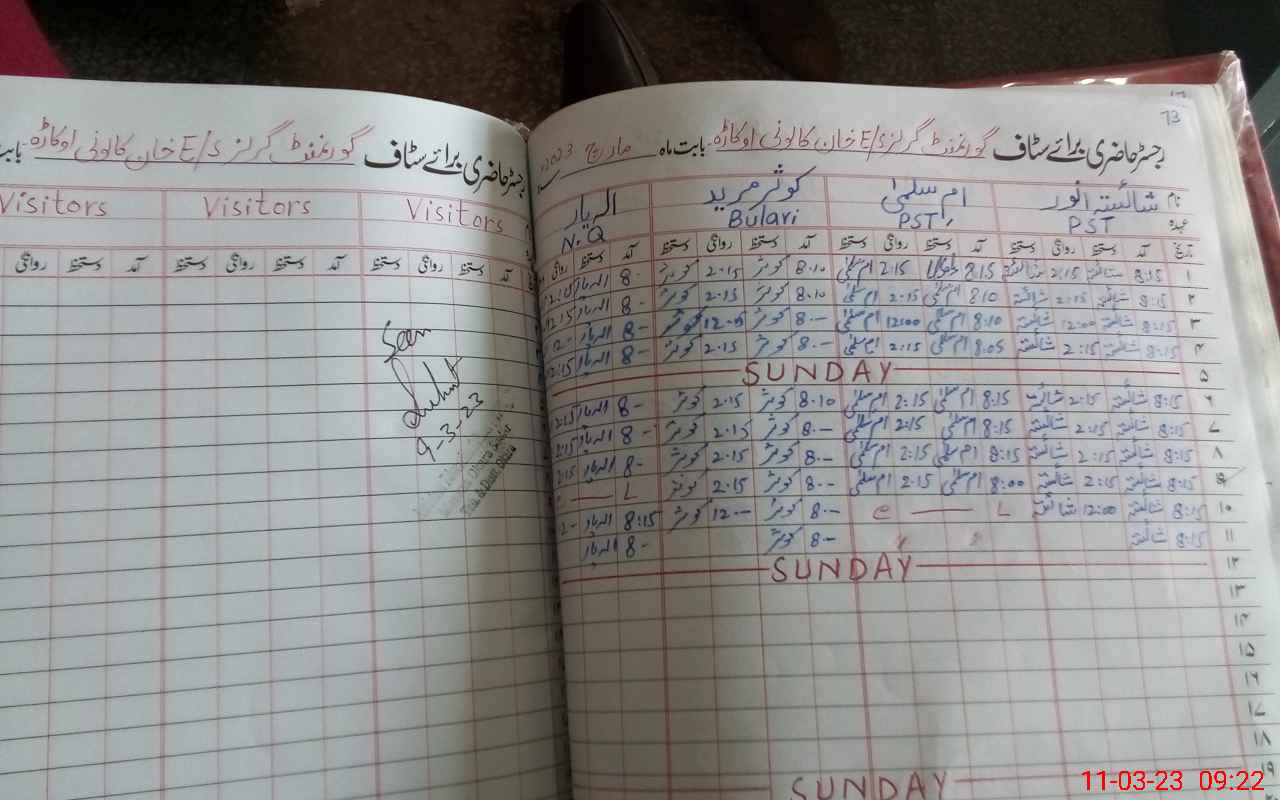 73
رجسٹر حاضری برائے سٹاف گورنمنٹ گرلز E/S خان کالونی اوکاڑہ بابت ماہ مارچ 2023
نام شائستہ انور ام سلمیٰ کوثر مرید الہ یار
عہدہ PST PST Bulari N.Q
تاریخ آمد دستخط روانگی دستخط آمد دستخط روانگی دستخط آمد دستخط روانگی دستخط آمد دستخط روانگی
۱ 8:15 شائستہ 2:15 شائستہ 8:15 2:15 ام سلمیٰ 8.10 کوثر 2.15 کوثر 8- الہ یار 2:15
۲ 8:15 شائستہ 2:15 شائستہ 8:10 ام سلمیٰ 2.15 ام سلمیٰ 8.10 کوثر 2.15 کوثر 8- الہ یار 2:15
۳ 8:15 شائستہ 12:00 شائستہ 8:10 ام سلمیٰ 12:00 ام سلمیٰ 8.- کوثر 12.- کوثر 8- الہ یار 12-
۴ 8:15 شائستہ 2:15 شائستہ 8:05 ام سلمیٰ 2:15 ام سلمیٰ 8.- کوثر 2.15 کوثر 8- الہ یار 2:15
۵ SUNDAY
۶ 8:15 شائستہ 2:15 شائستہ 8:15 ام سلمیٰ 2:15 ام سلمیٰ 8.10 کوثر 2.15 کوثر 8- الہ یار 2:15
۷ 8:15 شائستہ 2:15 شائستہ 8:15 ام سلمیٰ 2:15 ام سلمیٰ 8.- کوثر 2.15 کوثر 8- الہ یار 2:15
۸ 8:15 شائستہ 2:15 شائستہ 8:15 ام سلمیٰ 2:15 ام سلمیٰ 8.- کوثر 2.15 کوثر 8- الہ یار 2:15
۹ 8:15 شائستہ 2:15 شائستہ 8:00 ام سلمیٰ 2.15 ام سلمیٰ 8.- کوثر 2.15 کوثر L — e
۱۰ 8:15 شائستہ 12:00 شائستہ L — e 8.- کوثر 12.- کوثر 8:15 الہ یار 12-
۱۱ 8:15 شائستہ " " 8.- کوثر 8- الہ یار
۱۲ SUNDAY
۱۳
۱۴
۱۵
۱۶
۱۷
۱۸
۱۹ SUNDAY
رجسٹر حاضری برائے سٹاف گورنمنٹ گرلز E/S خان کالونی اوکاڑہ بابت
Visitors Visitors Visitors
آمد دستخط روانگی دستخط آمد دستخط روانگی دستخط آمد دستخط روانگی
Seen
9-3-23
11-03-23 09:22